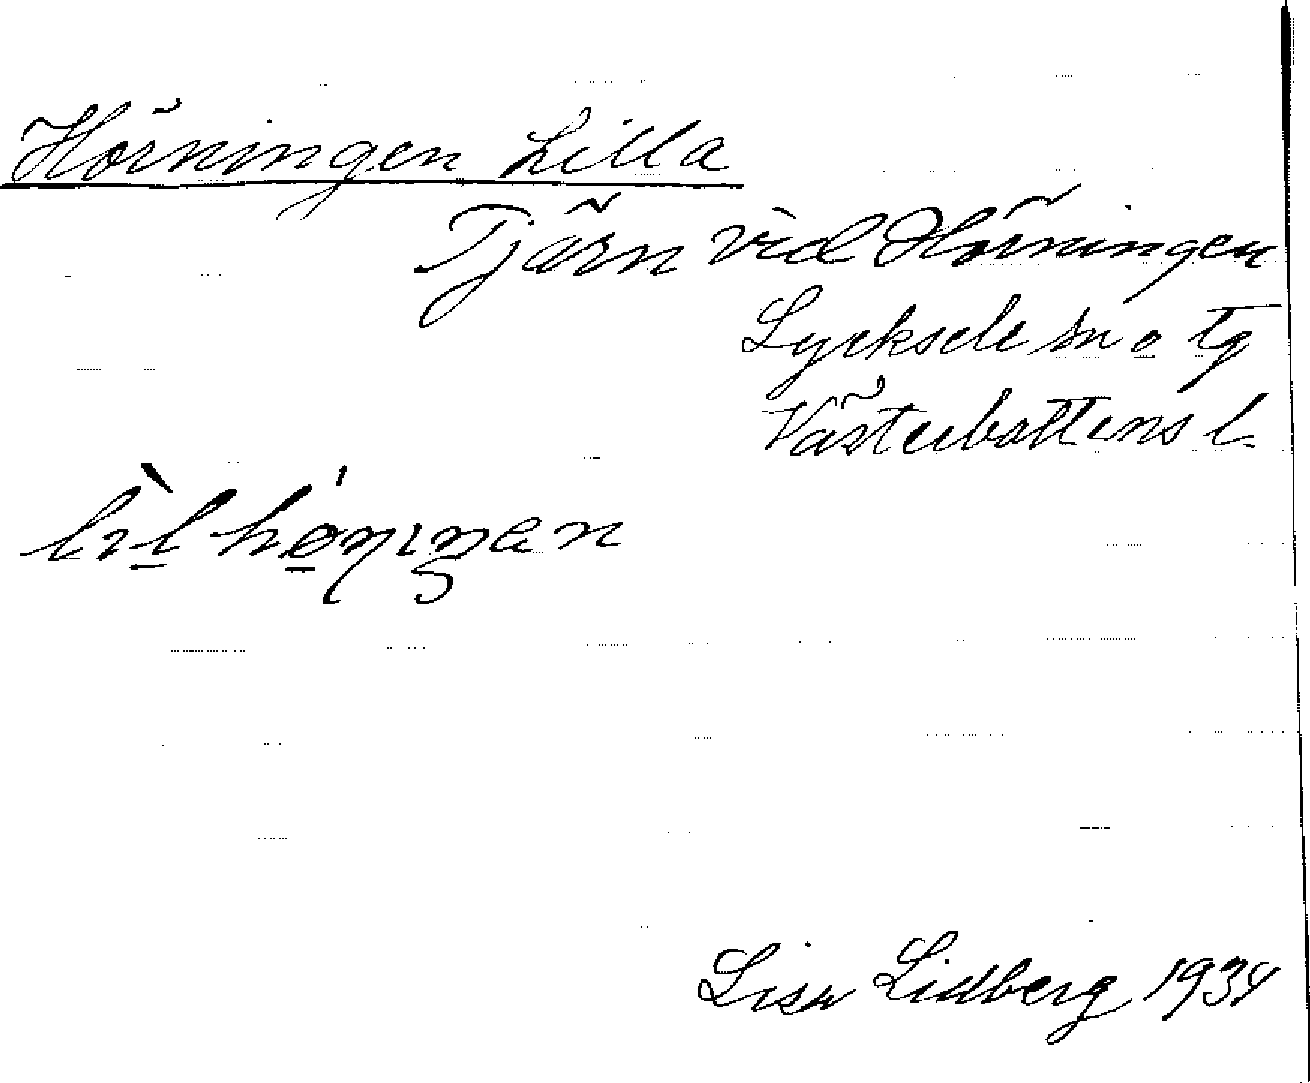 Hörningen Lilla
Tjärn vid Hörningen
Lycksele sn o tg
Västerbottens l.
Lisa Lidberg 1934